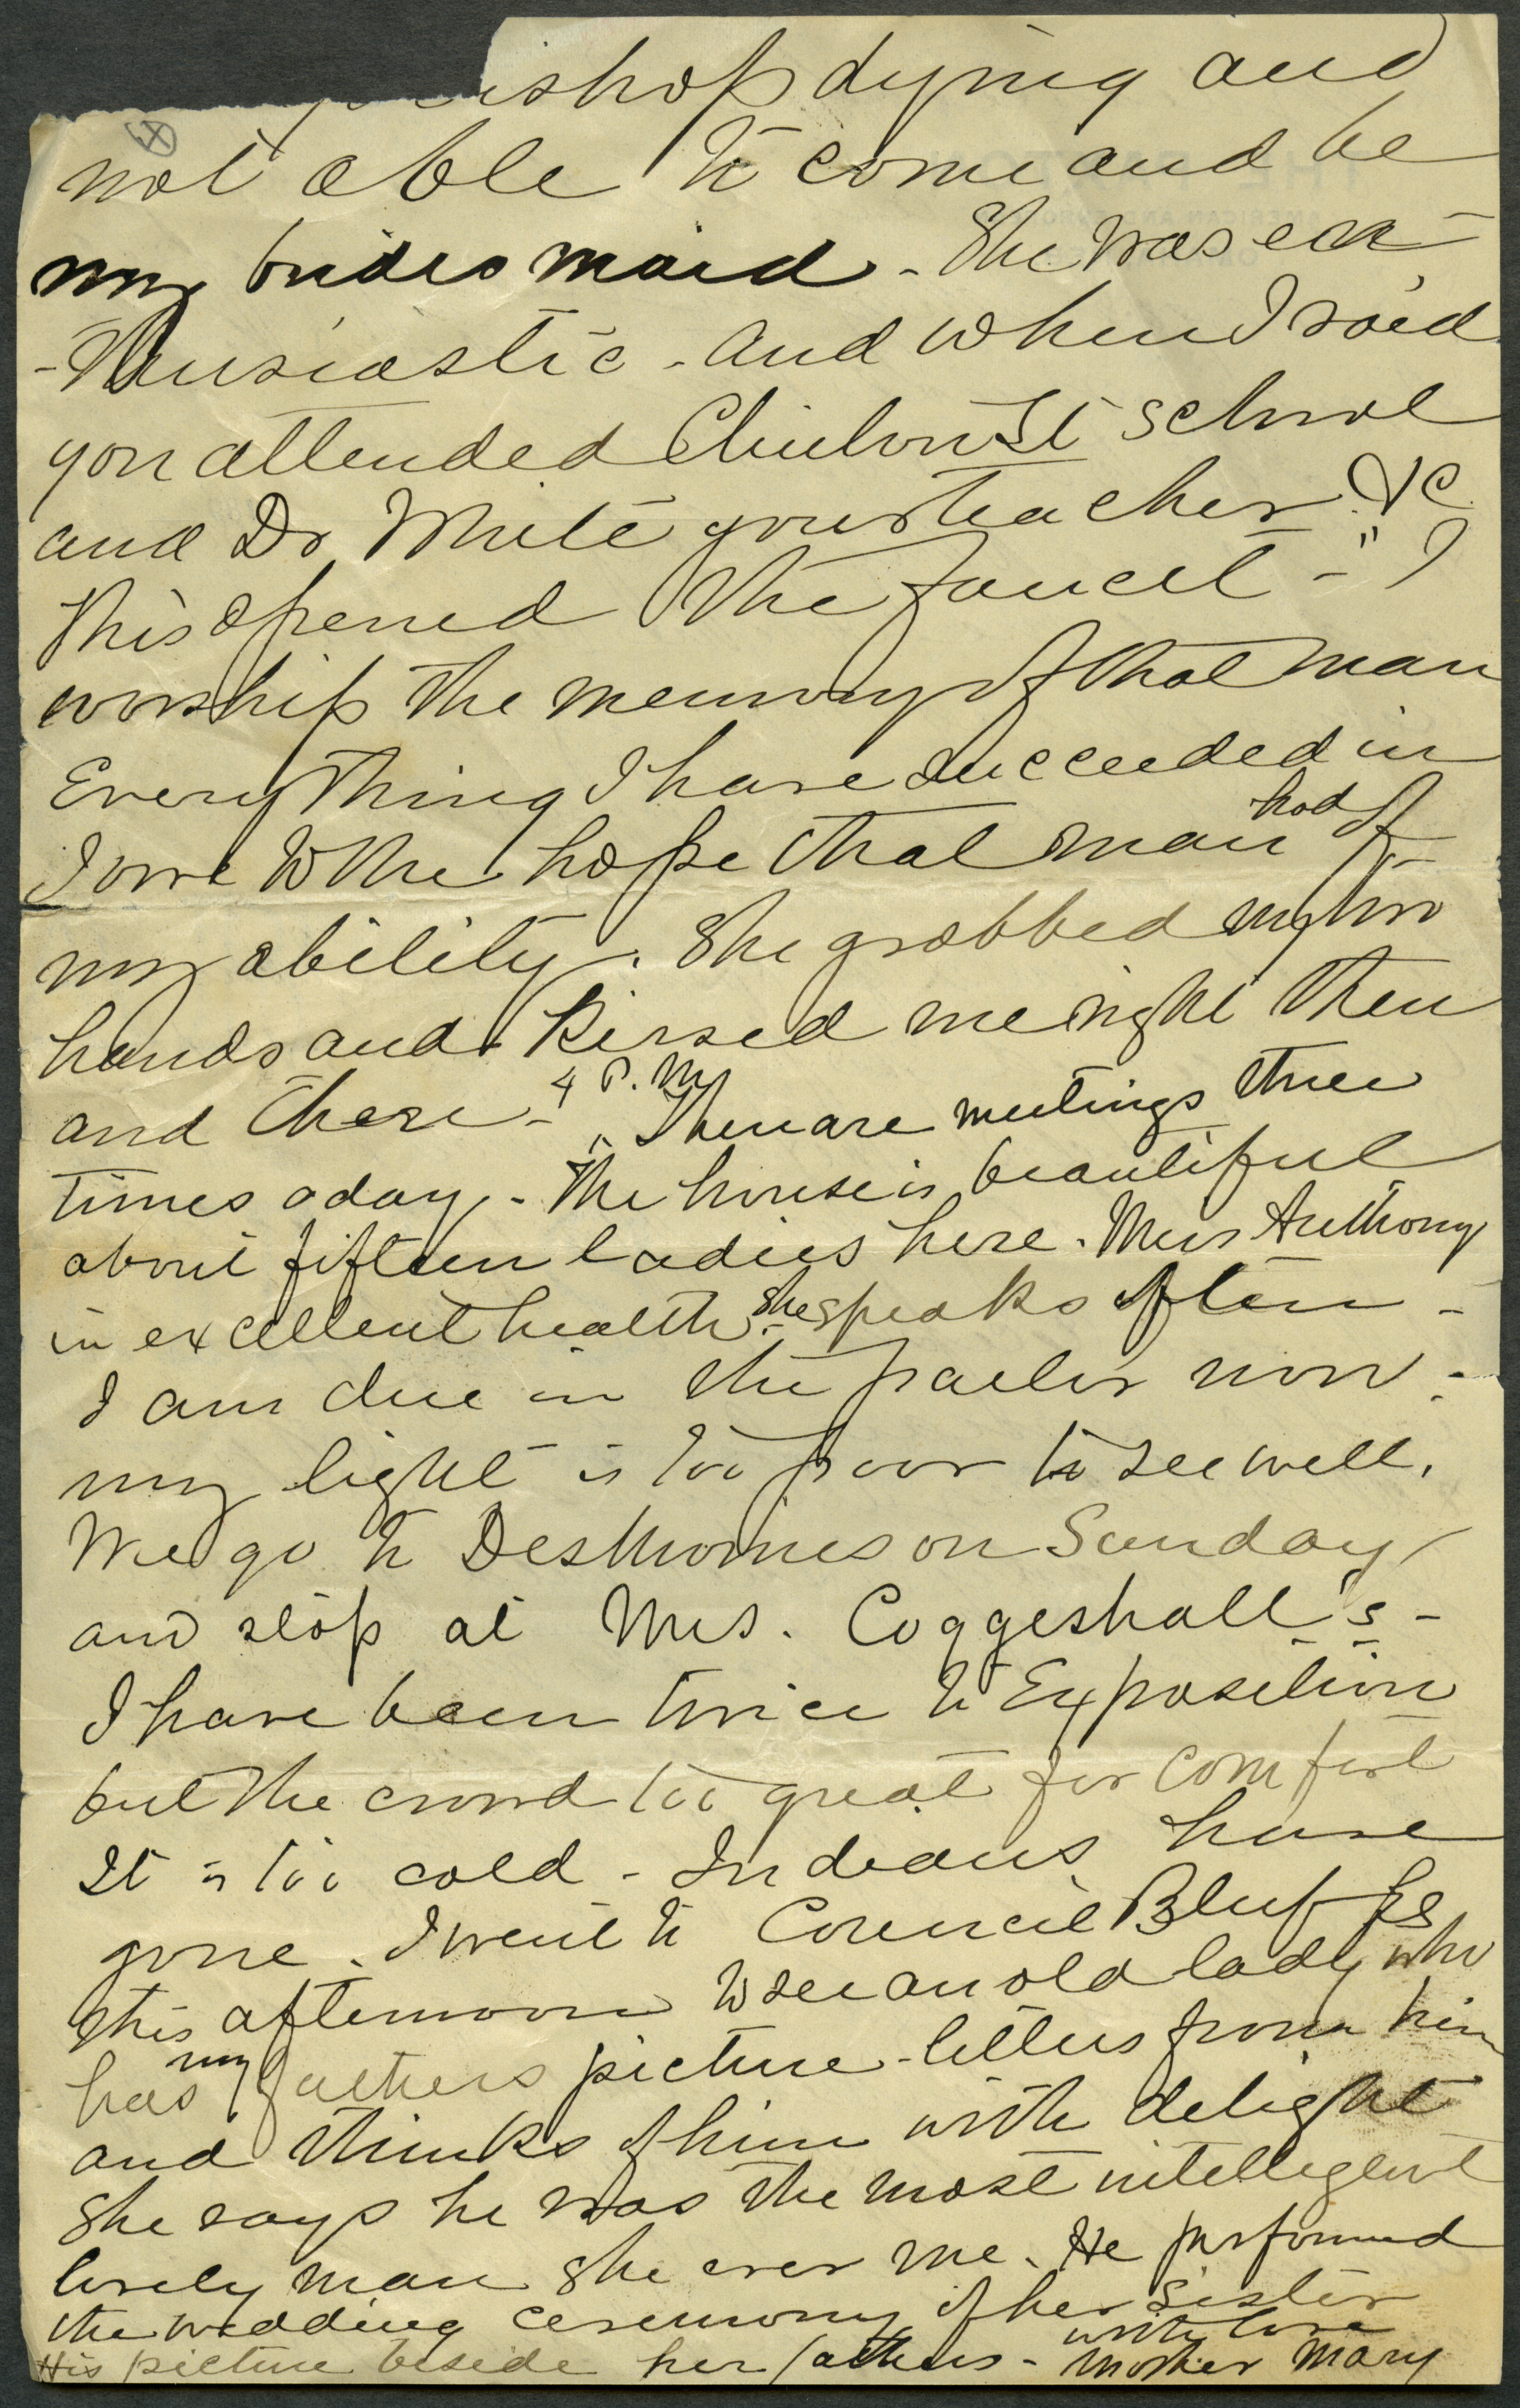 dying and
not able to come and be
my brides maid - She was en-
-thusiastic - and when I said
you attended Clinton St school
and Dr White your teacher &c
this opened the faucet - " I
worship the memory of that man
Every thing I have succeeded in
I owe to the hope that man had of
my ability. She grabbed my two
hands and kissed me right then
and there - "
4 P.M. There are meetings three
times a day - The house is beautiful
about fifteen ladies here. Miss Anthony
in excellent health - she speaks often -
I am due in the parlor now -
my light is too poor to see well.
We go to DesMoines on Sunday
and stop at Mrs. Coggeshall's -
I have been twice to Exposition
but the crowd too great for comfort
It is too cold - Indians have
gone. I went to Council Bluffs
this afternoon to see an old lady who
has my fathers picture - letters from him
and thinks of him with delight
She says he was the most intelligent
lovely man she ever me. He performed
the wedding ceremony of her sister
His picture beside her fathers -
with love
Mother Mary